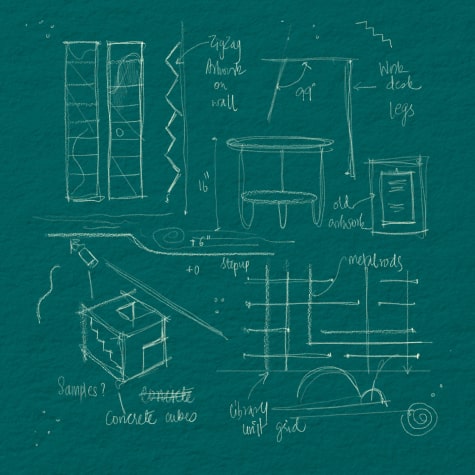 Zigzag
Artwork
on
wall
99°
Work
desk
legs
16"
old
artwork
+6"
+0
Step up
metal rods
Samples?
concrete
Concrete cubes
Library
unit grid